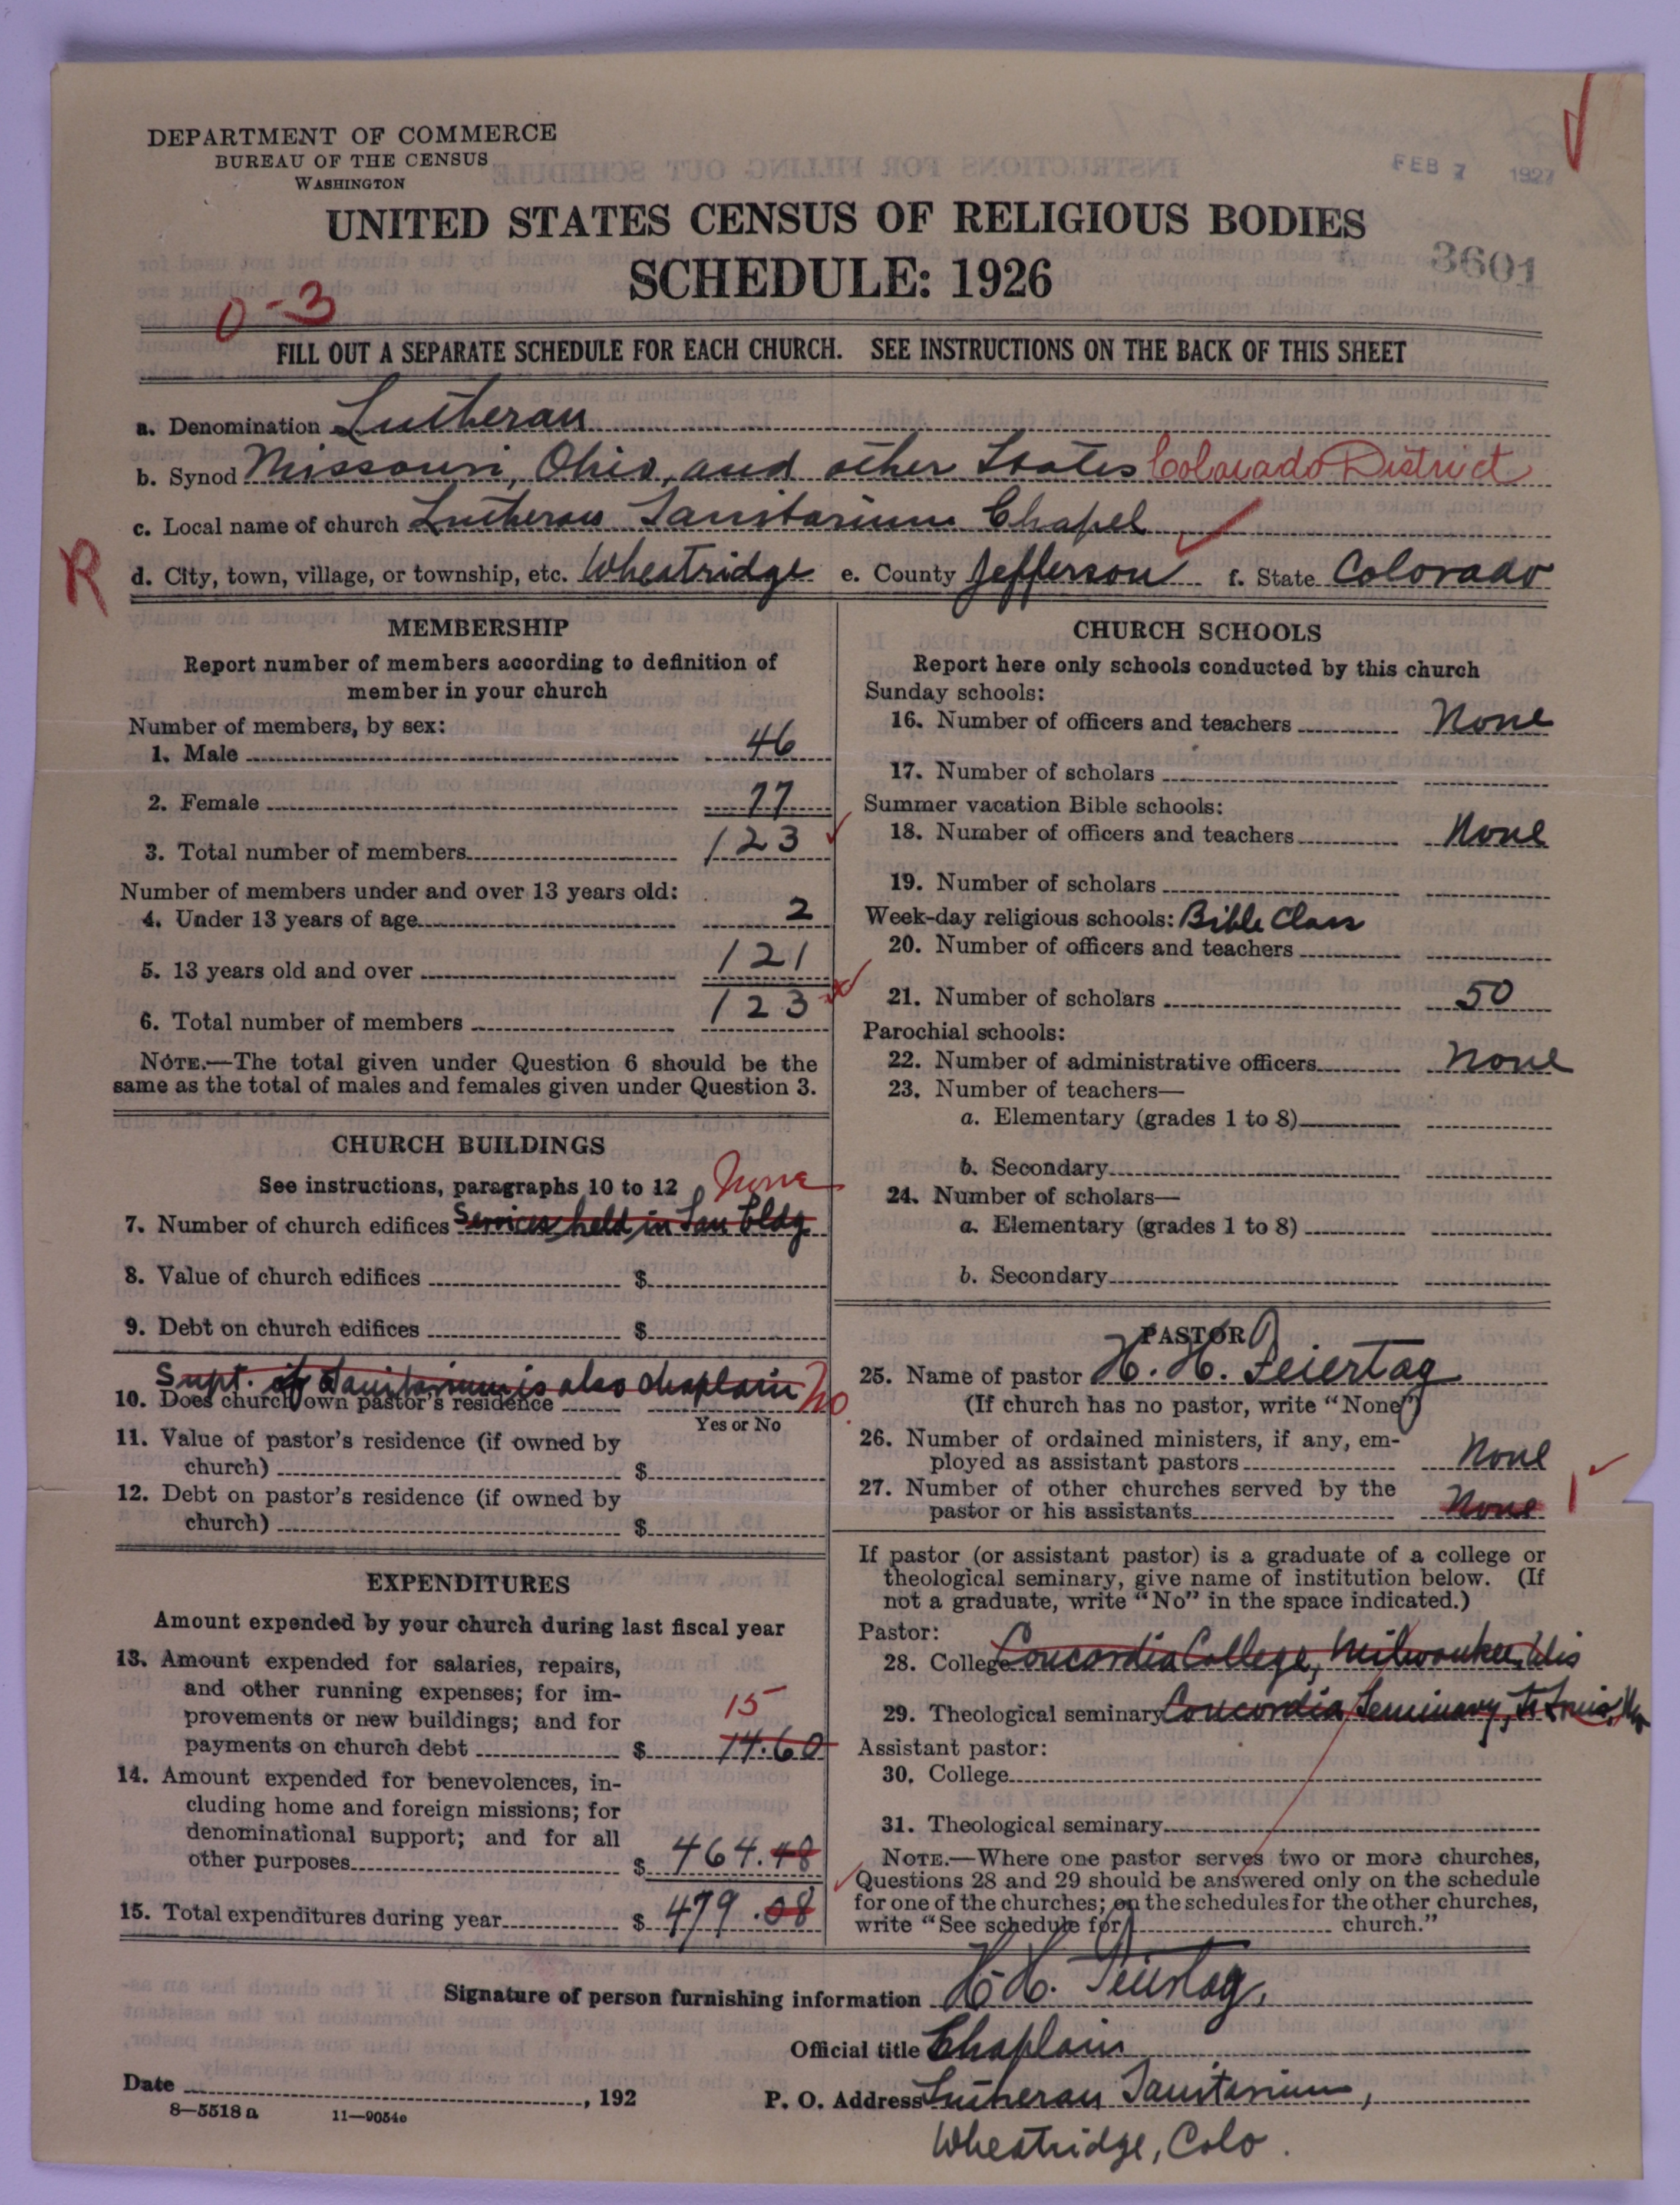 DEPARTMENT OF COMMERCE
BUREAU OF THE CENSUS
WASHINGTON
FEB 7 1927
UNITED STATES CENSUS OF RELIGIOUS BODIES
SCHEDULE: 1926
3601
0-3
FILL OUT A SEPARATE SCHEDULE FOR EACH CHURCH. SEE INSTRUCTIONS ON THE BACK OF THIS SHEET
a. Denomination Lutheran
b. Synod Missouri, Ohio, and other States Colorado District
c. Local name of church Lutheran Sanitarium Chapel
R
d. City, town, village, or township, etc. Wheatridge e. County Jefferson f. State Colorado
MEMBERSHIP
Report number of members according to definition of
member in your church
Number of members, by sex:
1. Male 46
2. Female 77
3. Total number of members 123
Number of members under and over 13 years old:
4. Under 13 years of age 2
5. 13 years old and over 121
6. Total number of members 123
NOTE.—The total given under Question 6 should be the
same as the total of males and females given under Question 3.
CHURCH BUILDINGS
See instructions, paragraphs 10 to 12 None
7. Number of church edifices Services held in San Bldg
8. Value of church edifices $
9. Debt on church edifices $
Supt. of Sanitarium is also chaplain No.
10. Does church own pastor's residence
Yes or No
11. Value of pastor's residence (if owned by
church) $
12. Debt on pastor's residence (if owned by
church) $
EXPENDITURES
Amount expended by your church during last fiscal year
13. Amount expended for salaries, repairs,
and other running expenses; for im-
provements or new buildings; and for 15
payments on church debt $ 14.60
14. Amount expended for benevolences, in-
cluding home and foreign missions; for
denominational support; and for all
other purposes $ 464.48
15. Total expenditures during year $ 479.08
CHURCH SCHOOLS
Report here only schools conducted by this church
Sunday schools:
16. Number of officers and teachers None
17. Number of scholars
Summer vacation Bible schools:
18. Number of officers and teachers None
19. Number of scholars
Week-day religious schools: Bible Class
20. Number of officers and teachers
21. Number of scholars 50
Parochial schools:
22. Number of administrative officers None
23. Number of teachers—
a. Elementary (grades 1 to 8)
b. Secondary
24. Number of scholars—
a. Elementary (grades 1 to 8)
b. Secondary
PASTOR
25. Name of pastor H. H. Feiertag
(If church has no pastor, write "None")
26. Number of ordained ministers, if any, em-
ployed as assistant pastors None
27. Number of other churches served by the
pastor or his assistants None 1
If pastor (or assistant pastor) is a graduate of a college or
theological seminary, give name of institution below. (If
not a graduate, write "No" in the space indicated.)
Pastor:
28. College Concordia College, Milwaukee, Wis
29. Theological seminary Concordia Seminary, St Louis, Mo
Assistant pastor:
30. College
31. Theological seminary
NOTE.—Where one pastor serves two or more churches,
Questions 28 and 29 should be answered only on the schedule
for one of the churches; on the schedules for the other churches,
write "See schedule for church."
Signature of person furnishing information H. H. Feiertag,
Official title Chaplain
Date , 192
P. O. Address Lutheran Sanitarium,
8—5518 a 11—9054c
Wheatridge, Colo.